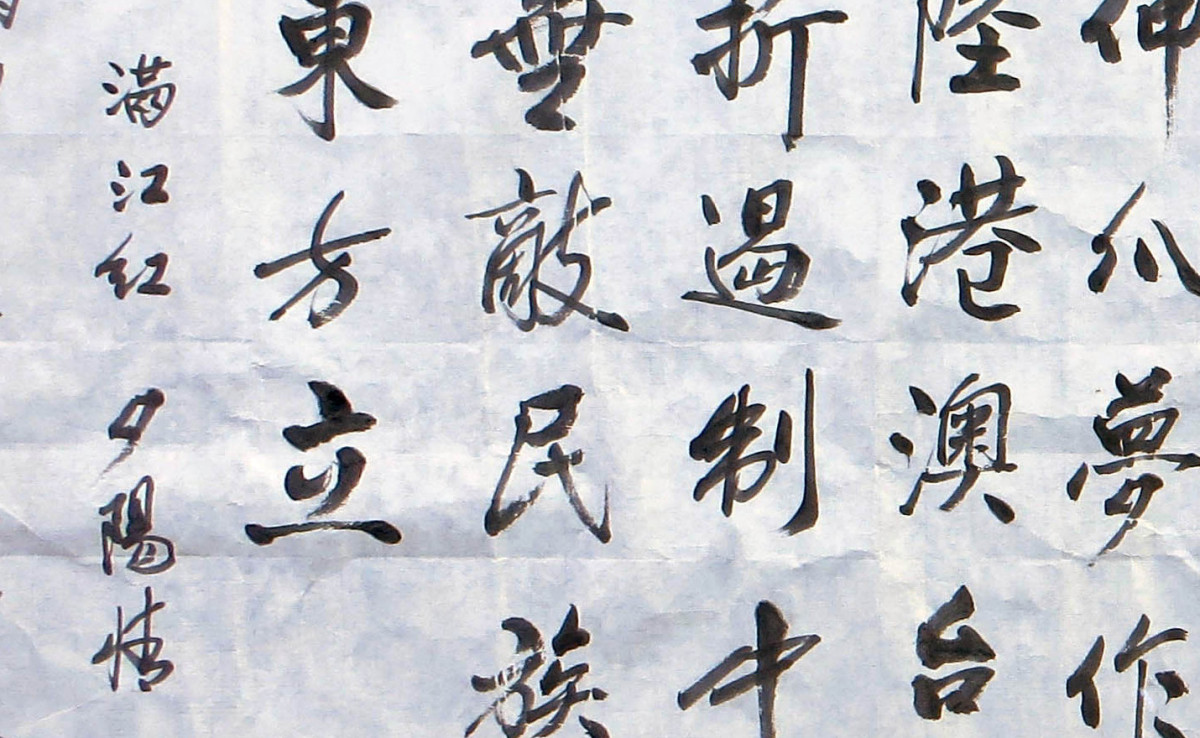 伸爪夢作
陸港澳台
折遏制中
無敵民族
東方立
滿江红 夕陽情